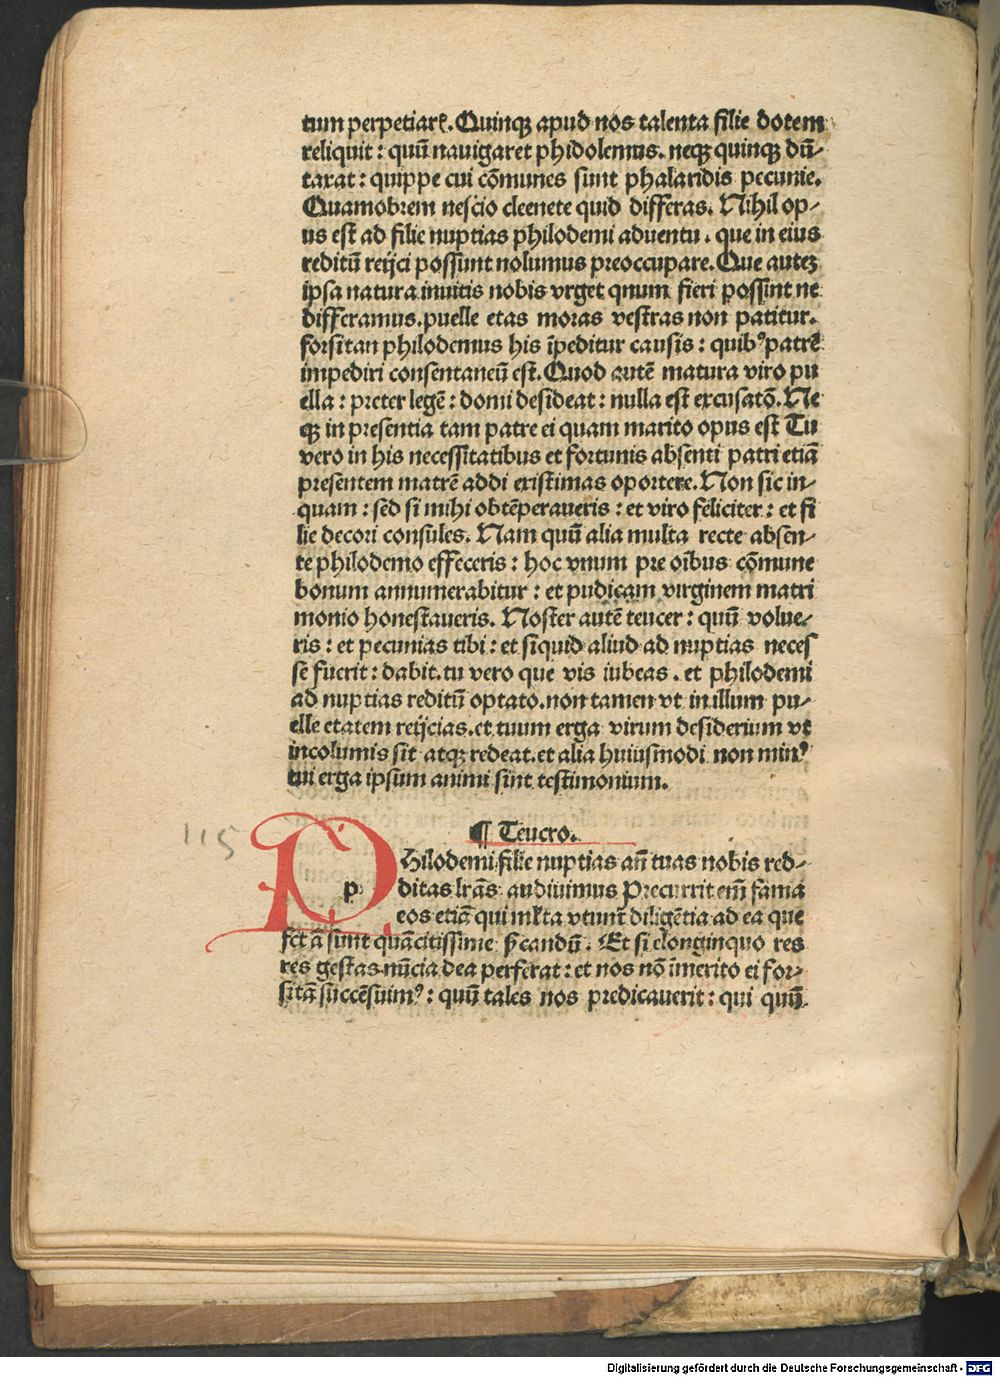 tum perpetiarẽ. Quinqꝫ apud nos talenta filie dotem
reliquit : quū nauigaret phidolemus. neqꝫ quinqꝫ dū⸗
taxat : quippe cui cōmunes sunt phalaridis pecunie.
Quamobrem nescio cleenete quid differas. Nihil op⸗
us est ad filie nuptias philodemi aduentu . que in eius
reditū reijci possunt nolumus preoccupare. Que auteꝫ
ipsa natura inuitis nobis vrget qnum fieri possint ne
differamus. puelle etas moras vestras non patitur.
forsitan philodemus his īpeditur causis : quibꝰ patrẽ
impediri consentaneū est. Quod autē matura viro pu
ella : preter legē : domi desideat : nulla est excusatō. Ne
qꝫ in presentia tam patre ei quam marito opus est Tu
vero in his necessitatibus et fortunis absenti patri etiā
presentem matrē addi existimas oportere. Non sic in⸗
quam : sed si mihi obtēperaueris : et viro feliciter : et fi
lie decori consules. Nam quū alia multa recte absen⸗
te philodemo effeceris : hoc vnum pre oībus cōmune
bonum annumerabitur : et pudicam virginem matri
monio honestaueris. Noster autē teucer : quū volue⸗
ris : et pecunias tibi : et siquid aliud ad nuptias neces
se fuerit : dabit. tu vero que vis iubeas . et philodemi
ad nuptias reditū optato. non tamen vt in illum pu⸗
elle etatem reijcias. et tuum erga virum desiderium vt
incolumis sit atqꝫ redeat. et alia huiusmodi non minꝰ
tui erga ipsum animi sint testimonium.
¶ Teucro.
115
P
p Hilodemi filie nuptias añ tuas nobis red⸗
ditas lrās audiuimus Precurrit em̄ fama
eos etiā qui mlta vtunt̄ diligētia ad ea que
sunt quācitissime candū. Et si elonginquo res
res gestas nūcia dea perferat : et nos nō īmerito ei for⸗
sitā succēsuimꝰ : quū tales nos predicauerit : qui quū
Digitalisierung gefördert durch die Deutsche Forschungsgemeinschaft - DFG